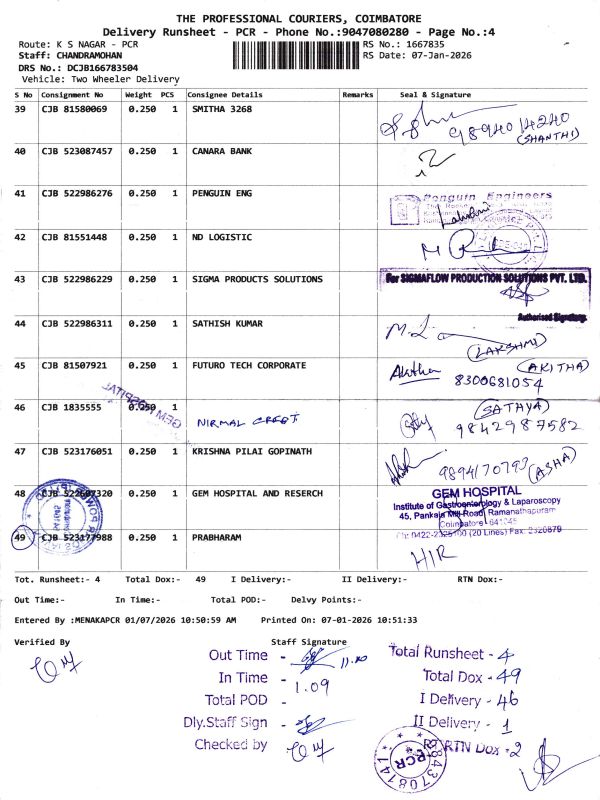 THE PROFESSIONAL COURIERS, COIMBATORE
Delivery Runsheet - PCR - Phone No.:9047080280 - Page No.:4
Route: K S NAGAR - PCR
RS No.: 1667835
Staff: CHANDRAMOHAN
RS Date: 07-Jan-2026
DRS No.: DCJB166783504
Vehicle: Two Wheeler Delivery
S No Consignment No Weight PCS Consignee Details Remarks Seal & Signature
39 CJB 81580069 0.250 1 SMITHA 3268
9894014240
(SHANTHI)
40 CJB 523087457 0.250 1 CANARA BANK
41 CJB 522986276 0.250 1 PENGUIN ENG
Penguin Engineers
Lakshmi
42 CJB 81551448 0.250 1 ND LOGISTIC
43 CJB 522986229 0.250 1 SIGMA PRODUCTS SOLUTIONS
For SIGMAFLOW PRODUCTION SOLUTIONS PVT. LTD.
Authorised Signatory
44 CJB 522986311 0.250 1 SATHISH KUMAR
(LAKSHMI)
45 CJB 81507921 0.250 1 FUTURO TECH CORPORATE
(AKITHA)
8300681054
GEM HOSPITAL
46 CJB 1835555 0.250 1 NIRMAL CREST
(SATHYA)
9842987582
47 CJB 523176051 0.250 1 KRISHNA PILAI GOPINATH
9894170793 (ASHA)
48 CJB 522607320 0.250 1 GEM HOSPITAL AND RESERCH
GEM HOSPITAL
Institute of Gastroenterology & Laparoscopy
45, Pankaja Mill Road, Ramanathapuram
Coimbatore - 641045
Ph: 0422-2325100 (20 Lines) Fax: 2320879
49 CJB 523177988 0.250 1 PRABHARAM
H/R
Tot. Runsheet:- 4 Total Dox:- 49 I Delivery:- II Delivery:- RTN Dox:-
Out Time:- In Time:- Total POD:- Delvy Points:-
Entered By :MENAKAPCR 01/07/2026 10:50:59 AM Printed On: 07-01-2026 10:51:33
Verified By Staff Signature
Out Time - 11.10
In Time - 1.09
Total POD -
Dly.Staff Sign -
Checked by
Total Runsheet - 4
Total Dox - 49
I Delivery - 46
II Delivery - 1
RTN Dox - 2
PCR
9843708141